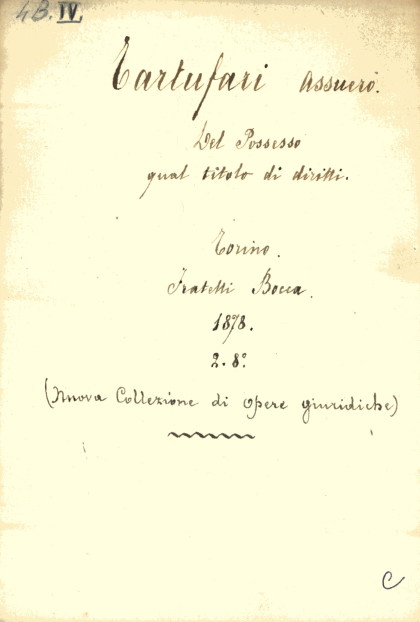 4B. IV.
Tartufari Assuero.
Del Possesso
qual titolo di diritti.
Torino.
Fratelli Bocca.
1878.
2. 8°
(Nuova Collezione di opere giuridiche)
C